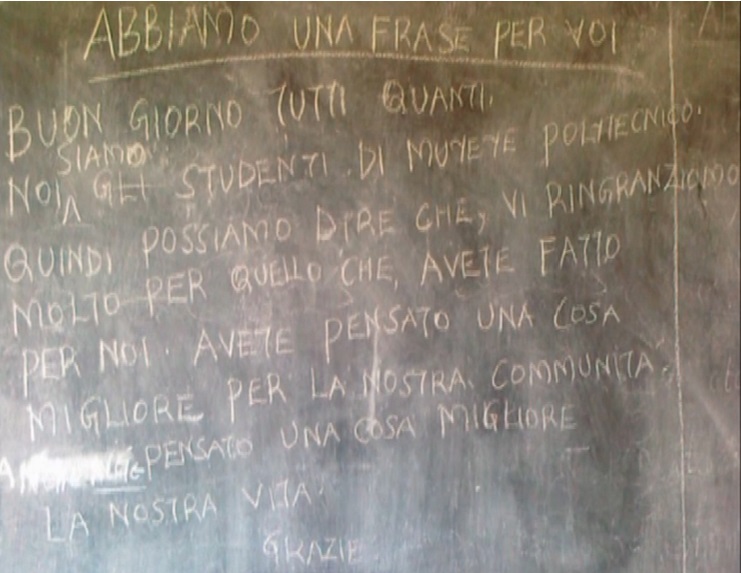 ABBIAMO UNA FRASE PER VOI
BUON GIORNO TUTTI QUANTI.
NOI SIAMO GLI STUDENTI DI MUYEYE POLITIECNICO.
QUINDI POSSIAMO DIRE CHE, VI RINGRANZIAMO
MOLTO PER QUELLO CHE, AVETE FATTO
PER NOI. AVETE PENSATO UNA COSA
MIGLIORE PER LA NOSTRA COMMUNITA.
PENSATO UNA COSA MIGLIORE
LA NOSTRA VITA.
GRAZIE